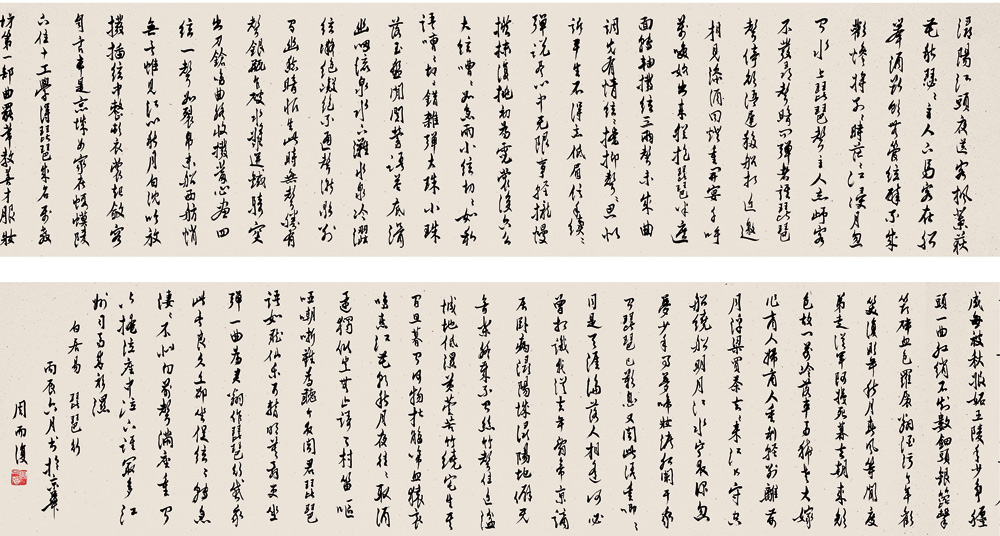 潯陽江頭夜送客楓葉荻
花秋瑟瑟主人下馬客在船
舉酒欲飲無管絃醉不成
歡慘將別別時茫茫江浸月忽
聞水上琵琶聲主人忘歸客
不發尋聲暗問彈者誰琵琶
聲停欲語遲移船相近邀
相見添酒回燈重開宴千呼
萬喚始出來猶抱琵琶半遮
面轉軸撥絃三兩聲未成曲
調先有情絃絃掩抑聲聲思似
訴平生不得志低眉信手續續
彈說盡心中無限事輕攏慢
撚抹復挑初為霓裳後六幺
大絃嘈嘈如急雨小絃切切如私
語嘈嘈切切錯雜彈大珠小珠
落玉盤間關鶯語花底滑
幽咽流泉水下灘水泉冷澀
絃凝絕凝絕不通聲漸歇別
有幽愁暗恨生此時無聲勝有
聲銀瓶乍破水漿迸鐵騎突
出刀鎗鳴曲終收撥當心畫四
絃一聲如裂帛東船西舫悄
無言惟見江心秋月白沈吟放
撥插絃中整頓衣裳起斂容
自言本是京城女家在蝦蟆陵
下住十三學得琵琶成名屬教
坊第一部曲罷常教善才服妝
成每被秋娘妒五陵年少爭纏
頭一曲紅綃不知數鈿頭銀篦擊
節碎血色羅裙翻酒污今年歡
笑復明年秋月春風等閒度
弟走從軍阿姨死暮去朝來顏
色故門前冷落車馬稀老大嫁
作商人婦商人重利輕別離前
月浮梁買茶去去來江口守空
船繞船明月江水寒夜深忽
夢少年事夢啼妝淚紅闌干我
聞琵琶已歎息又聞此語重唧唧
同是天涯淪落人相逢何必
曾相識我從去年辭帝京謫
居臥病潯陽城潯陽地僻無
音樂終歲不聞絲竹聲住近湓
城地低濕黃蘆苦竹繞宅生其
間旦暮聞何物杜鵑啼血猿哀
鳴春江花朝秋月夜往往取酒
還獨傾豈無山歌與村笛嘔
啞嘲哳難為聽今夜聞君琵琶
語如聽仙樂耳暫明莫辭更坐
彈一曲為君翻作琵琶行感我
此言良久立卻坐促絃絃轉急
淒淒不似向前聲滿座重聞
皆掩泣座中泣下誰最多江
州司馬青衫濕
白居易 琵琶行
丙辰六月書於京華
周而復